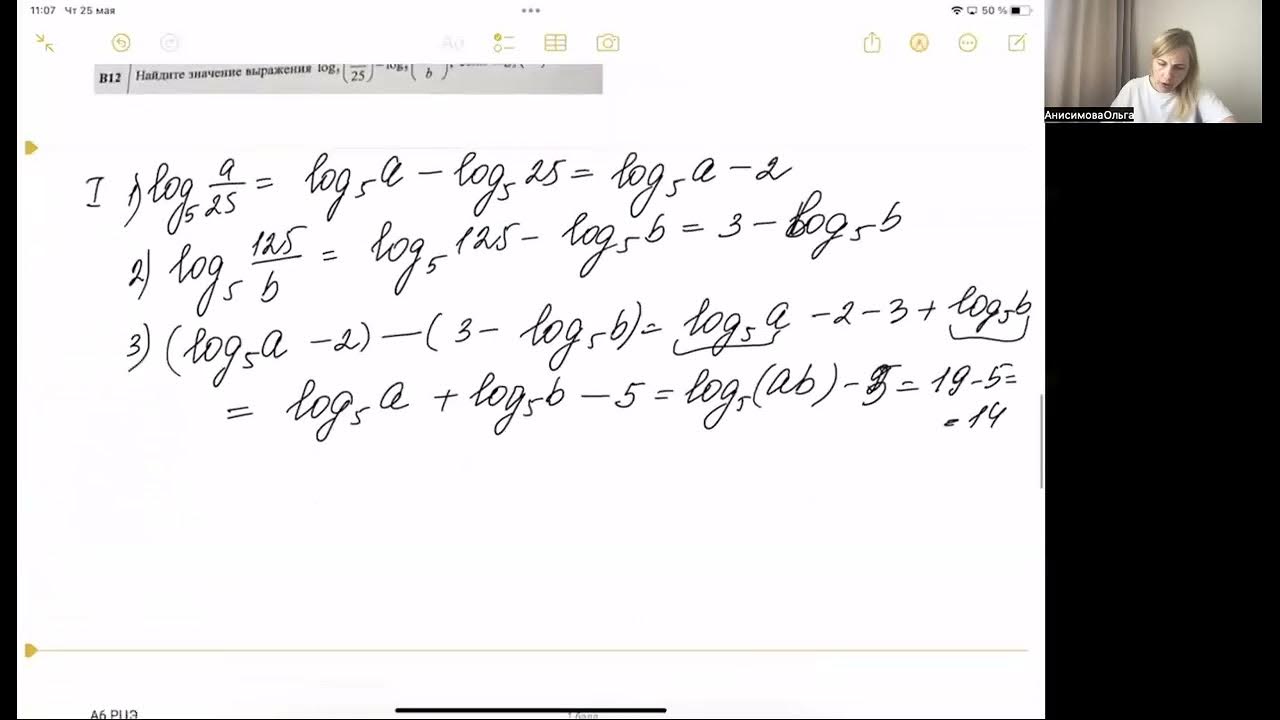 11:07 Чт 25 мая
50 %
АнисимоваОльга
B12 Найдите значение выражения log₅(/25) - log₅(/b)
I 1) log₅ a/25 = log₅a - log₅25 = log₅a - 2
2) log₅ 125/b = log₅125 - log₅b = 3 - log₅b
3) (log₅a - 2) - (3 - log₅b) = log₅a - 2 - 3 + log₅b
= log₅a + log₅b - 5 = log₅(ab) - 5 = 19 - 5 =
= 14
А6 РЦЭ
1 балл